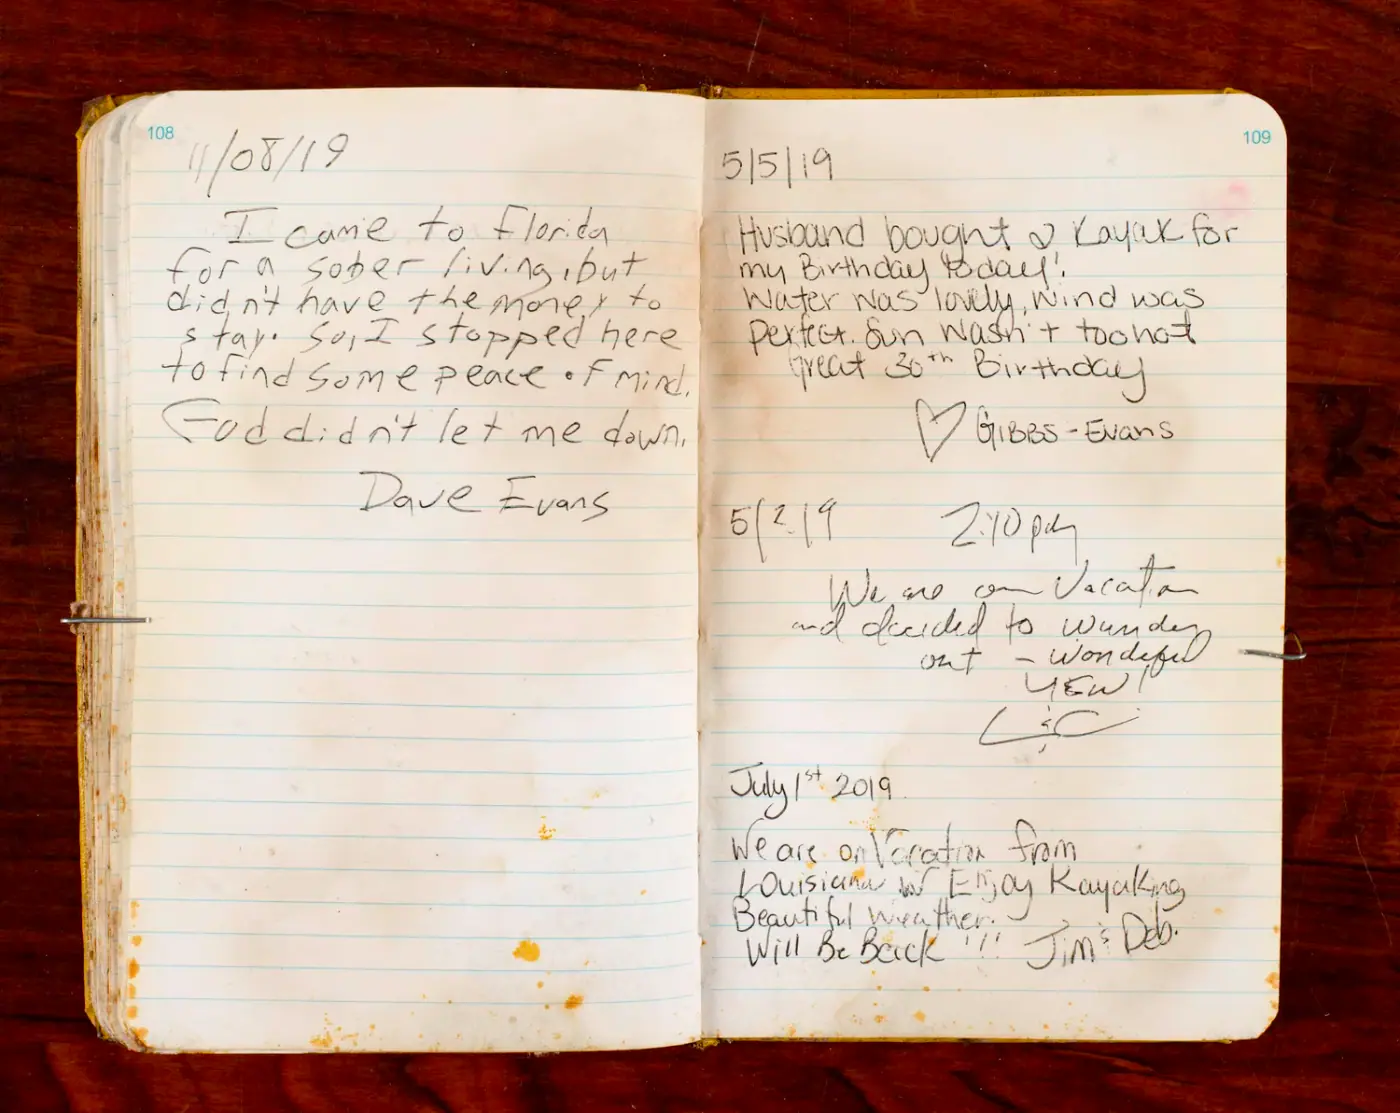 108
11/08/19
I came to Florida
for a sober living, but
didn't have the money to
stay. So, I stopped here
to find some peace of mind.
God didn't let me down.
Dave Evans
109
5/5/19
Husband bought Kayak for
my Birthday today!
Water was lovely, Wind was
Perfect. Sun Wasn't too hot
Great 30th Birthday
♡ GIBBS-Evans
5/2/19 2:40 pm
We are on Vacation
and decided to wander
out - Wonderful
VIEW!
L & C
July 1st 2019
We are on Vacation from
Louisiana Enjoy Kayaking
Beautiful Weather.
Will Be Back !!! Jim & Deb.